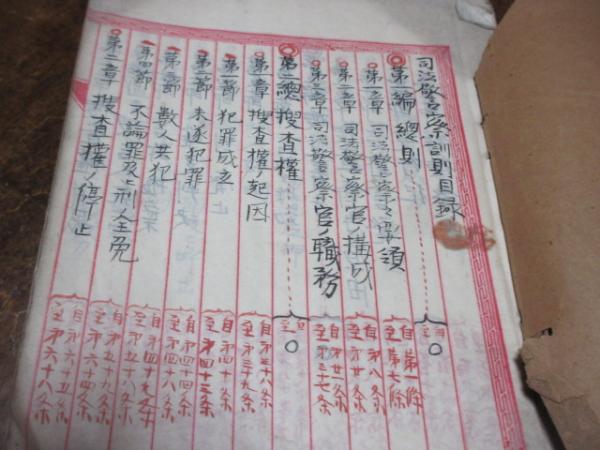 司法警察訓則目録
第一編 總則 自至〇
第一章 司法警察ノ要領 自第一條至第七條
第二章 司法警察官ノ構成 自第八条至第廿条
第三章 司法警察官ノ職務 自第廿一条至第三十七条
第二編 搜査權 自至〇
第一章 搜査權ノ起因 自第三十八条至第三十九条
第一節 犯罪成立 自第四十条至第四十三条
第二節 未遂犯罪 至第四十四条
第三節 數人共犯 自第四十五条至第四十八条
第四節 不論罪及ヒ刑ノ全免 自第四十九条至第五十八条
第二章 搜査權ノ停止 自第五十九条至第六十四条
自第六十五条至第六十八条